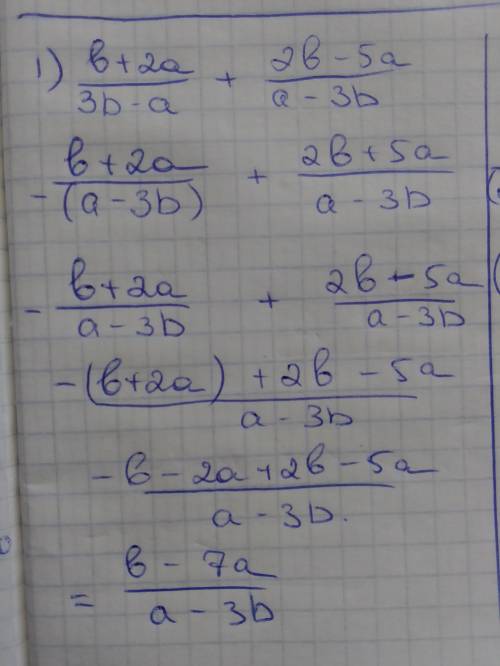 1) (b+2a)/(3b-a) + (2b-5a)/(a-3b)
(b+2a)/(-(a-3b)) + (2b+5a)/(a-3b)
-(b+2a)/(a-3b) + (2b-5a)/(a-3b)
(-(b+2a)+2b-5a)/(a-3b)
(-b-2a+2b-5a)/(a-3b).
= (b-7a)/(a-3b)